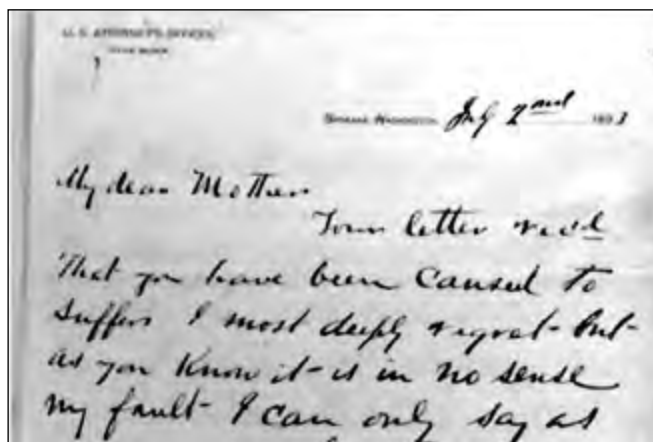 U. S. ATTORNEY'S OFFICE,
SPOKANE, WASHINGTON, July 2nd 1893
My dear Mother
Your letter rec'd
That you have been caused to
suffer I most deeply regret - but -
as you know it - is in no sense
my fault - I can only say as